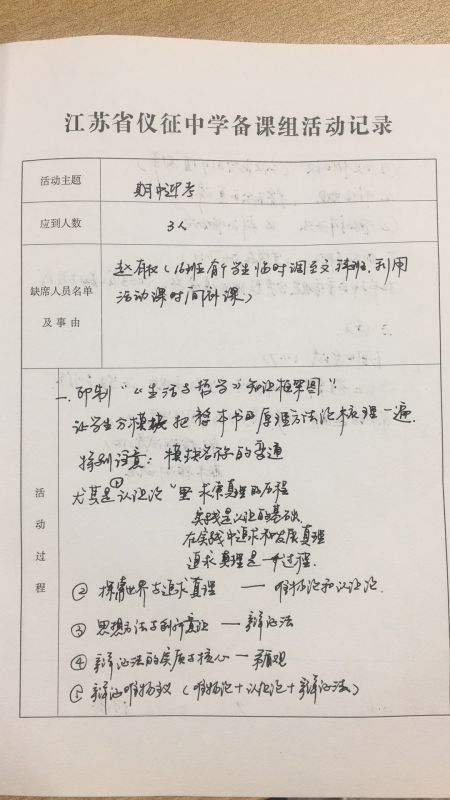 江苏省仪征中学备课组活动记录
活动主题
期中迎考
应到人数
3人
缺席人员名单
及事由
赵有权(16班有个学生临时调至文科班,利用
活动课时间补课)
活动过程
一.印制“《生活与哲学》知识框架图”
让学生分模块把整本书的原理方法论梳理一遍.
特别注意:模块名称的贯通
尤其是①“认识论”里 求索真理的历程
实践是认识的基础.
在实践中追求和发展真理
追求真理是一个过程.
② 探索世界与追求真理 — 唯物论和认识论.
③ 思想方法与创新意识 — 辩证法
④ 辩证法的实质与核心 — 矛盾观
⑤ 辩证唯物主义 (唯物论+认识论+辩证法)